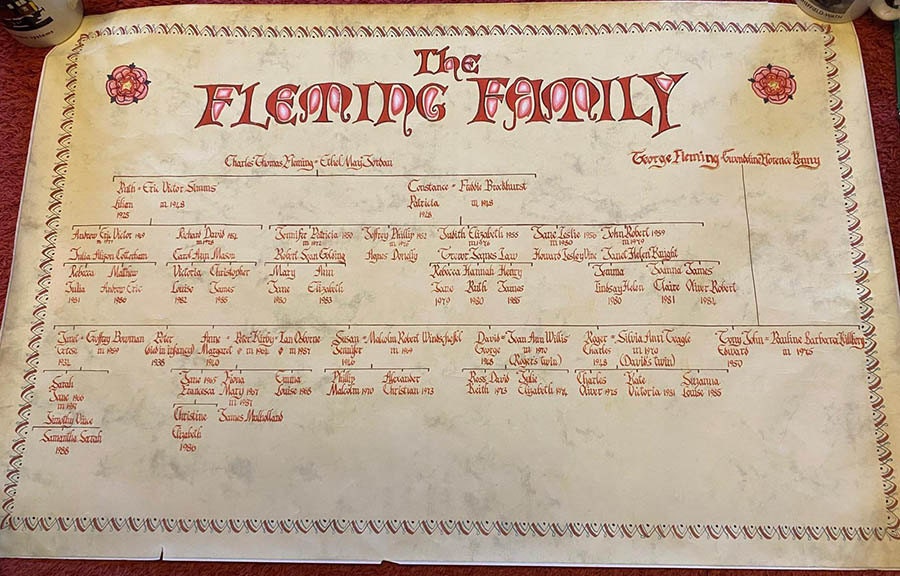 The
FLEMING FAMILY
Charles Thomas Fleming = Ethel May Jordan
George Fleming = Gwendoline Florence Penny
Ruth = Eric Victor Simms
Constance = Freddie Brockhurst
Lilian m. 1948
Patricia m. 1948
1925
1928
Andrew Eric Victor 1949
Richard David 1952
Jennifer Patricia 1950
Jeffrey Phillip 1952
Judith Elizabeth 1955
Jane Leslie 1956
John Robert 1959
Julia Alison Cotterham
Carol Ann Mason
Robert Sean Golding
Agnes Donelly
Trevor James Law
Howard Lesley
Janet Helen Knight
Rebecca Matthew
Victoria Christopher
Mary Ann
Rebecca Hannah Henry
Joanna James
Julia Andrew Eric
Louise James
Jane Elizabeth
Jane Ruth James
Lindsay Helen
Claire Oliver Robert
1981 1986
1982 1985
1980 1983
1979 1980 1985
1980
1981 1984
Janet = Geoffrey Bowman
Peter
Anne = Peter Kirby = Ian Osborne
Susan = Malcolm Robert
David = Joan Ann Willis
Roger = Silvia Ann Teagle
Tony John = Pauline Barbara
m 1959
(died in infancy)
Margaret
Jennifer
George m 1970
Charles m 1970
Edward m 1975
1938
1940
(Roger's twin)
1948 (David's twin)
Sarah
Jane 1965
Fiona
Emma
Phillip
Alexander
Ross David
Julie
Charles
Kate
Suzanna
Jane 1966
Francesca
Mary 1967
Louise 1968
Malcolm 1970
Christian 1973
Keith 1973
Oliver 1975
Victoria 1981
Louise 1985
Timothy
Christine
James Mulholland
Samantha Sarah
Elizabeth
1988
1986